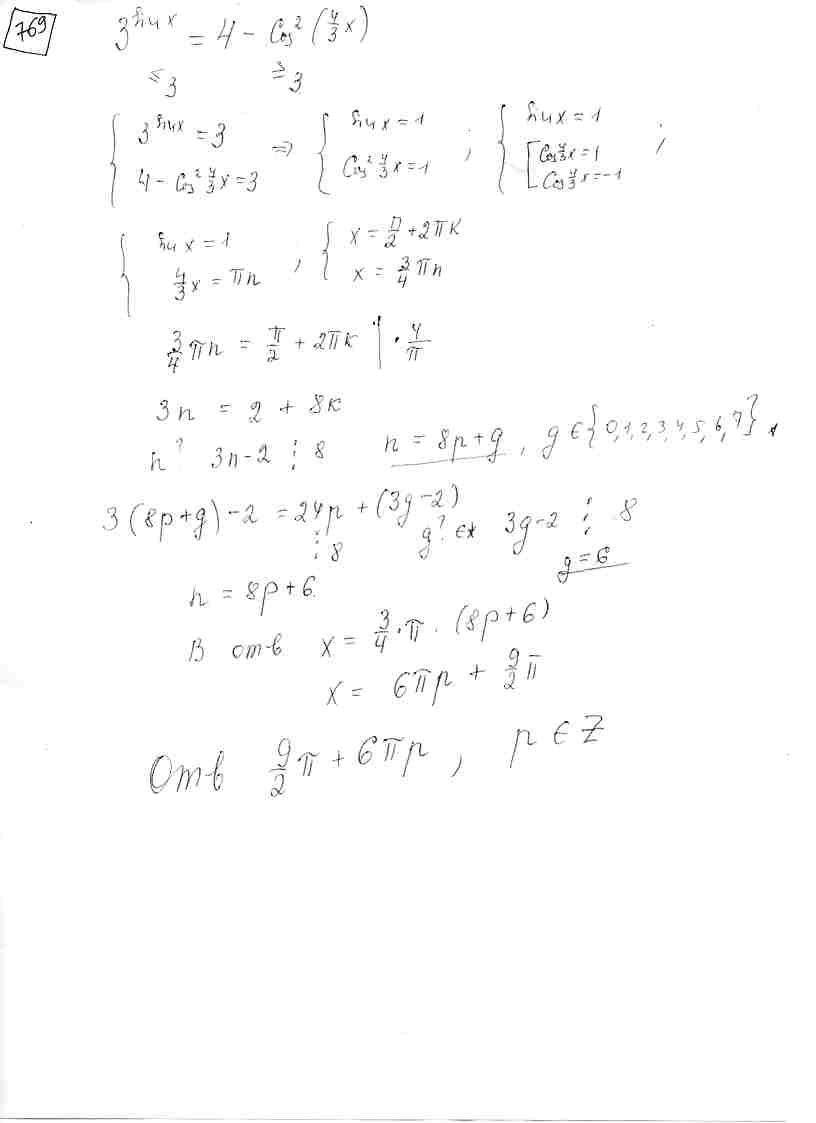 769
3^{sin x} = 4 - Cos² (4/3 x)
≤ 3 ≥ 3
{ 3^{sin x} = 3 ; 4 - Cos² 4/3 x = 3 ⇒ { sin x = 1 ; Cos² 4/3 x = 1 ; { sin x = 1 ; [ Cos 4/3 x = 1 ; Cos 4/3 x = -1 ;
{ sin x = 1 ; 4/3 x = πn , { x = π/2 + 2πk ; x = 3/4 πn
3/4 πn = π/2 + 2πk | · 4/π
3n = 2 + 8k
n? 3n - 2 ⋮ 8 n = 8p + g , g ∈ {0,1,2,3,4,5,6,7} *
3(8p+g) - 2 = 24p + (3g-2)
⋮ 8 g? ∈ * 3g-2 ⋮ 8
g = 6
n = 8p + 6
В отв x = 3/4 · π · (8p+6)
x = 6πp + 9/2 π
Отв 9/2 π + 6πp , p ∈ Z